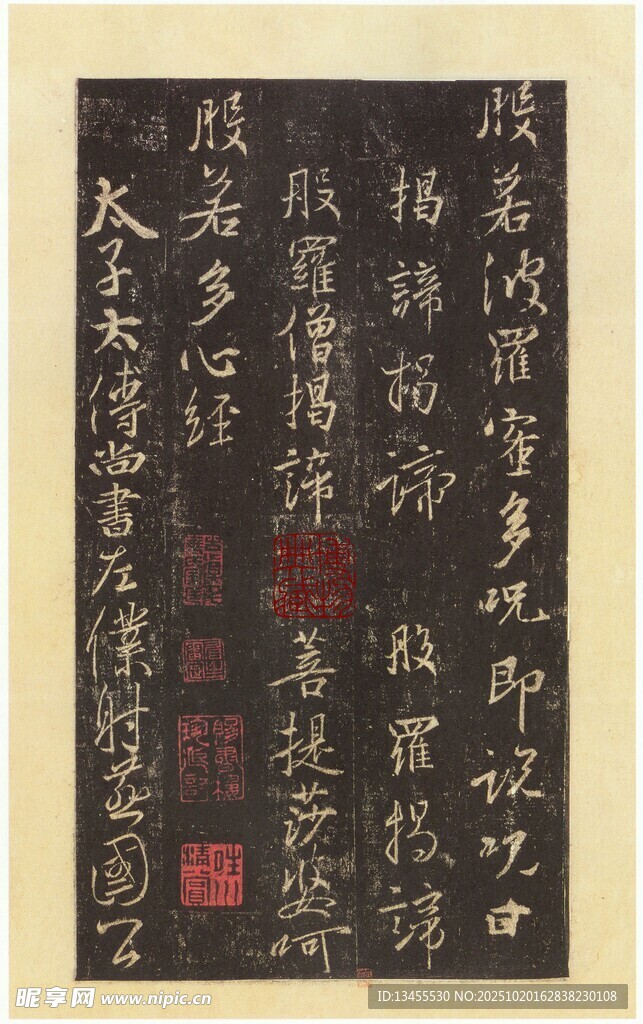 般若波羅蜜多咒即說咒曰
揭諦揭諦 般羅揭諦
般羅僧揭諦 菩提莎婆呵
般若多心經
太子太傅尚書左僕射燕國公
昵享网 www.nipic.cn
ID:13455530 NO:20251020162838230108